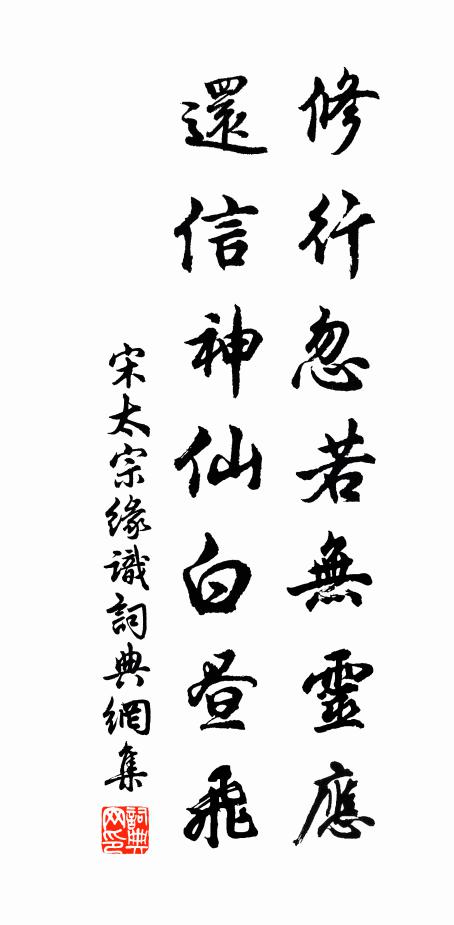 修行忽若無靈應
還信神仙白晝飛
宋太宗緣識詞典網集
詞典網印